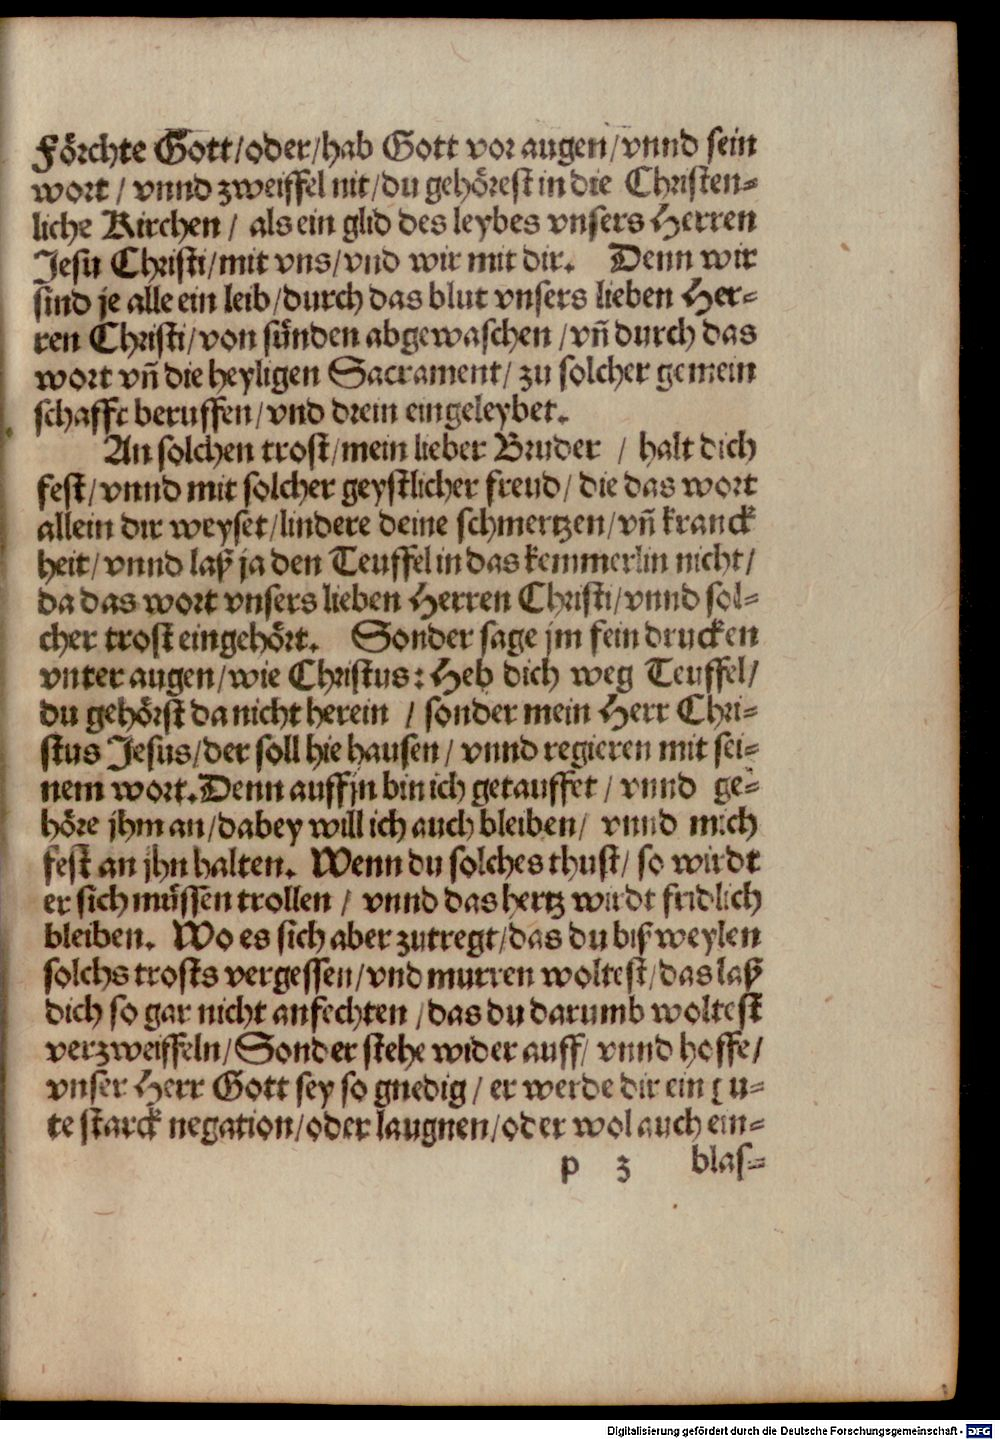 Förchte Gott/oder/hab Gott vor augen/vnnd sein
wort / vnnd zweiffel nit/du gehörest in die Christen-
liche Kirchen / als ein glid des leybes vnsers Herren
Jesu Christi/mit vns/vnd wir mit dir. Denn wir
sind je alle ein leib/durch das blut vnsers lieben Her-
ren Christi/von sünden abgewaschen /vñ durch das
wort vñ die heyligen Sacrament/ zu solcher gemein
schafft beruffen/vnd drein eingeleybet.
An solchen trost/mein lieber Bruder / halt dich
fest/vnnd mit solcher geystlicher freud/ die das wort
allein dir weyset/lindere deine schmertzen/vñ kranck
heit/vnnd laß ja den Teuffel in das kemmerlin nicht/
da das wort vnsers lieben Herren Christi/vnnd sol-
cher trost eingehört. Sonder sage jm fein drucken
vnter augen/wie Christus: Heb dich weg Teuffel/
du gehörst da nicht herein / sonder mein Herr Chri-
stus Jesus/der soll hie hausen/ vnnd regieren mit sei-
nem wort. Denn auff jn bin ich getauffet / vnnd ge-
höre jhm an/dabey will ich auch bleiben/ vnnd mich
fest an jhn halten. Wenn du solches thust/ so wirdt
er sich müssen trollen / vnnd das hertz wirdt fridlich
bleiben. Wo es sich aber zutregt/das du bißweylen
solchs trosts vergessen/vnd murren woltest/das laß
dich so gar nicht anfechten /das du darumb woltest
verzweiffeln/Sonder stehe wider auff/ vnnd hoffe/
vnser Herr Gott sey so gnedig / er werde dir ein gu-
te starck negation/oder laugnen/oder wol auch ein-
p 3 blas-
Digitalisierung gefördert durch die Deutsche Forschungsgemeinschaft - DFG